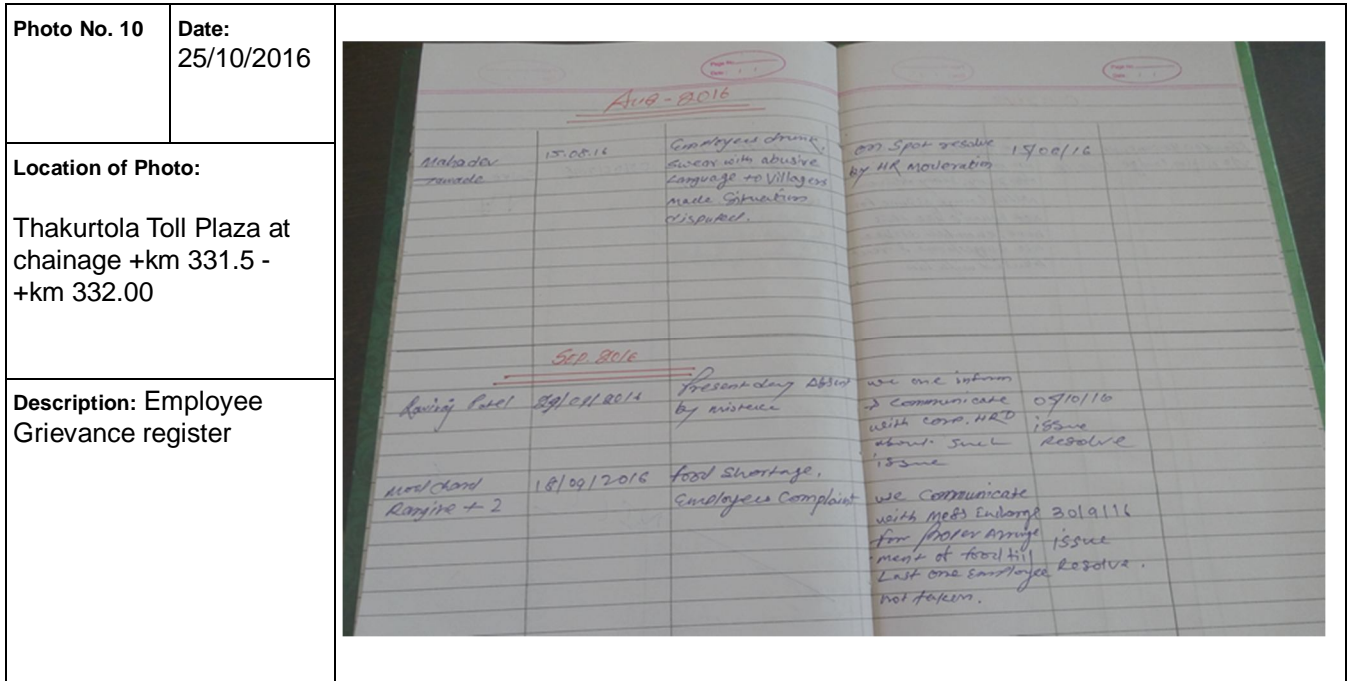 Photo No. 10
Date:
25/10/2016
Location of Photo:
Thakurtola Toll Plaza at
chainage +km 331.5 -
+km 332.00
Description: Employee
Grievance register
Page No.
Date: / /
Page No.
Date: / /
Aug - 2016
Mahadev
15.08.16
Employees drunk,
swear with abusive
Language to Villagers
made Situation
disputed.
on Spot resolve
by HR moderation
15/08/16
Sep. 2016
Patel
Present day Absent
by
we one inform
& communicate
with corp. HRD
about such
issue
05/10/16
issue
Resolve
chand
+ 2
18/09/2016
food shortage,
Employees Complaint
we communicate
with Mess
for proper Arrange
ment of food till
Last one Employee
not taken.
30/9/16
issue
Resolve.